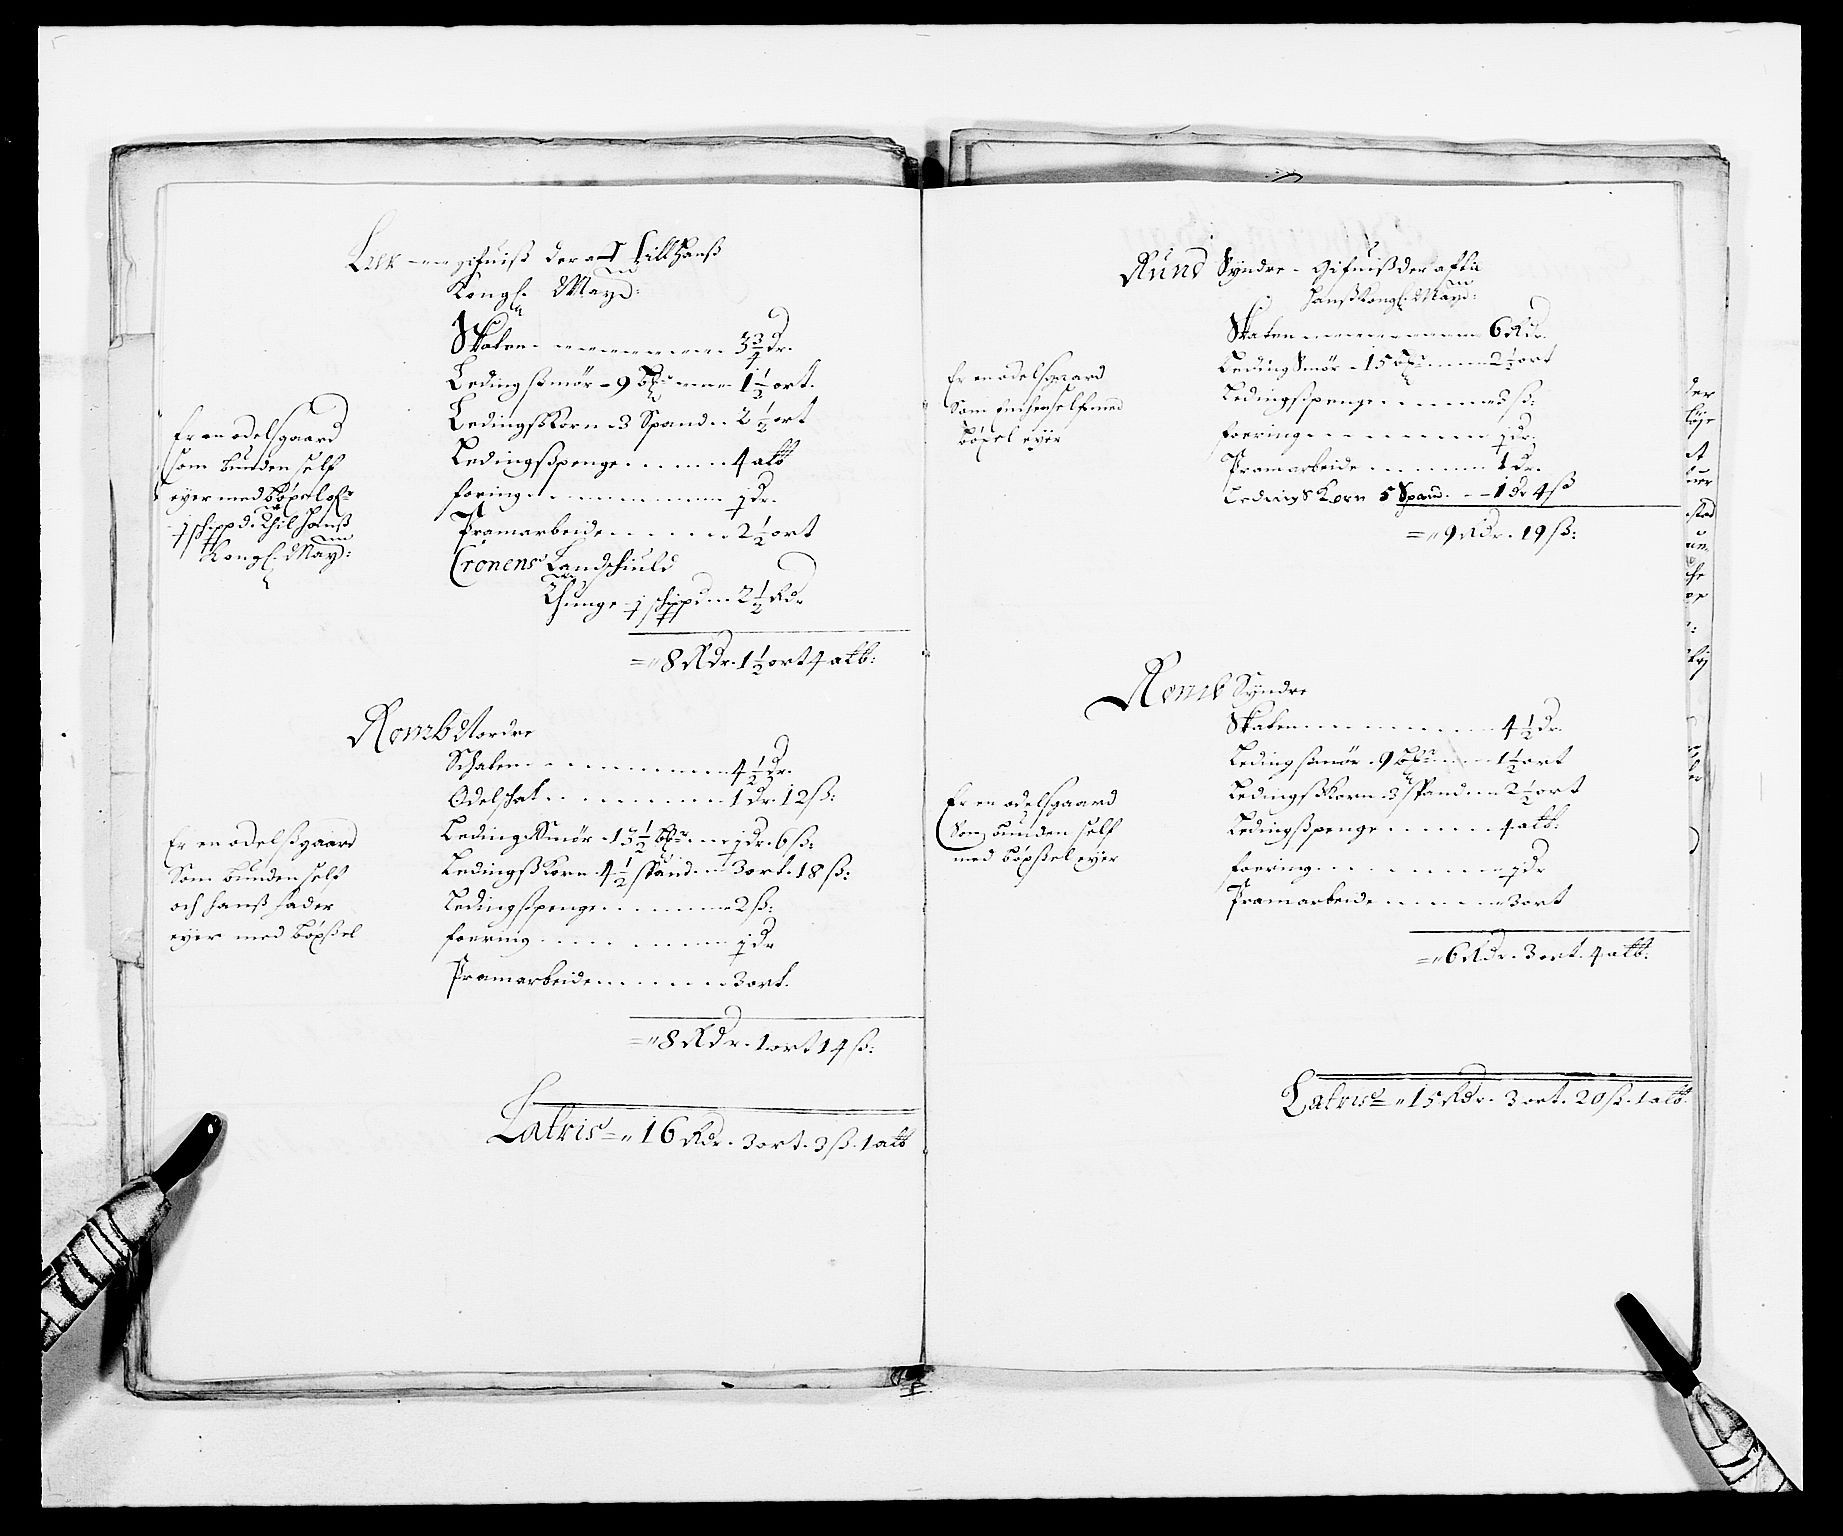 Leek ---- gifuiß der aff till Hanß
Kongl. Mayd:
Skaten - - - - - - - - - 3 3/4 Dr.
Ledingsmör - 9 bℓ - - - - 1 1/2 ort.
Ledingskorn - 3 Spand - - 2 1/2 ort
Ledingspenge - - - - - - 4 alb
foring - - - - - - - - - j dr.
Pramarbeide - - - - - - 2 1/2 ort
Cronens Landschiuld
Tunge j schippd - - 2 1/2 Rdr
= 8 Rdr. 1 1/2 ort 4 alb:
Er en odelsgaard
som bunden self
eyer med böxel off
j schippd. till hanß
Kongl. Mayd:
Remb Nordre
Schaten - - - - - - - - 4 1/2 Dr.
Odelschat - - - - - - - 1 Dr. 12 ß:
Ledingsmör - 13 1/2 bℓ - - - j dr. 6 ß:
Ledingskorn 4 1/2 spand - - 3 ort. 18 ß:
Ledingspenge - - - - - - 2 ß:
foering - - - - - - - - j dr
Pramarbeide - - - - - - 3 ort.
= 8 Rdr. 1 ort 14 ß:
Er en odelßgaard
Som bunden self
och hanß fader
eyer med böxßel
Latris = 16 Rdr. 3 ort. 3 ß. 1 alb
Rund Syndre - Gifuiß der aff till
hanß Kongl. Mayd:
Skaten - - - - - - - - 6 Rdr.
Ledingsmör - 15 bℓ - - - 2 1/2 ort
Ledingspenge - - - - - - ß:
foering - - - - - - - - j dr.
Pramarbeide - - - - - - 1 dr.
Ledings Korn 5 Spand. - - 1 dr 4 ß
= 9 Rdr. 19 ß:
Er en odelsgaard
Som self med
böxel eyer
Remb Syndre
Skaten - - - - - - - - 4 1/2 Dr.
Ledingsmör - 9 bℓ - - - 1 1/2 ort
Ledingskorn - 3 spand - - 2 1/2 ort
Ledingspenge - - - - - - 4 alb.
foering - - - - - - - - j dr
Pramarbeide - - - - - - 3 ort
= 6 Rdr. 3 ort. 4 alb:
Er en odelsgaard
Som bunden self
med böxßel eyer
Latris = 15 Rdr. 3 ort. 20 ß. 1 alb.